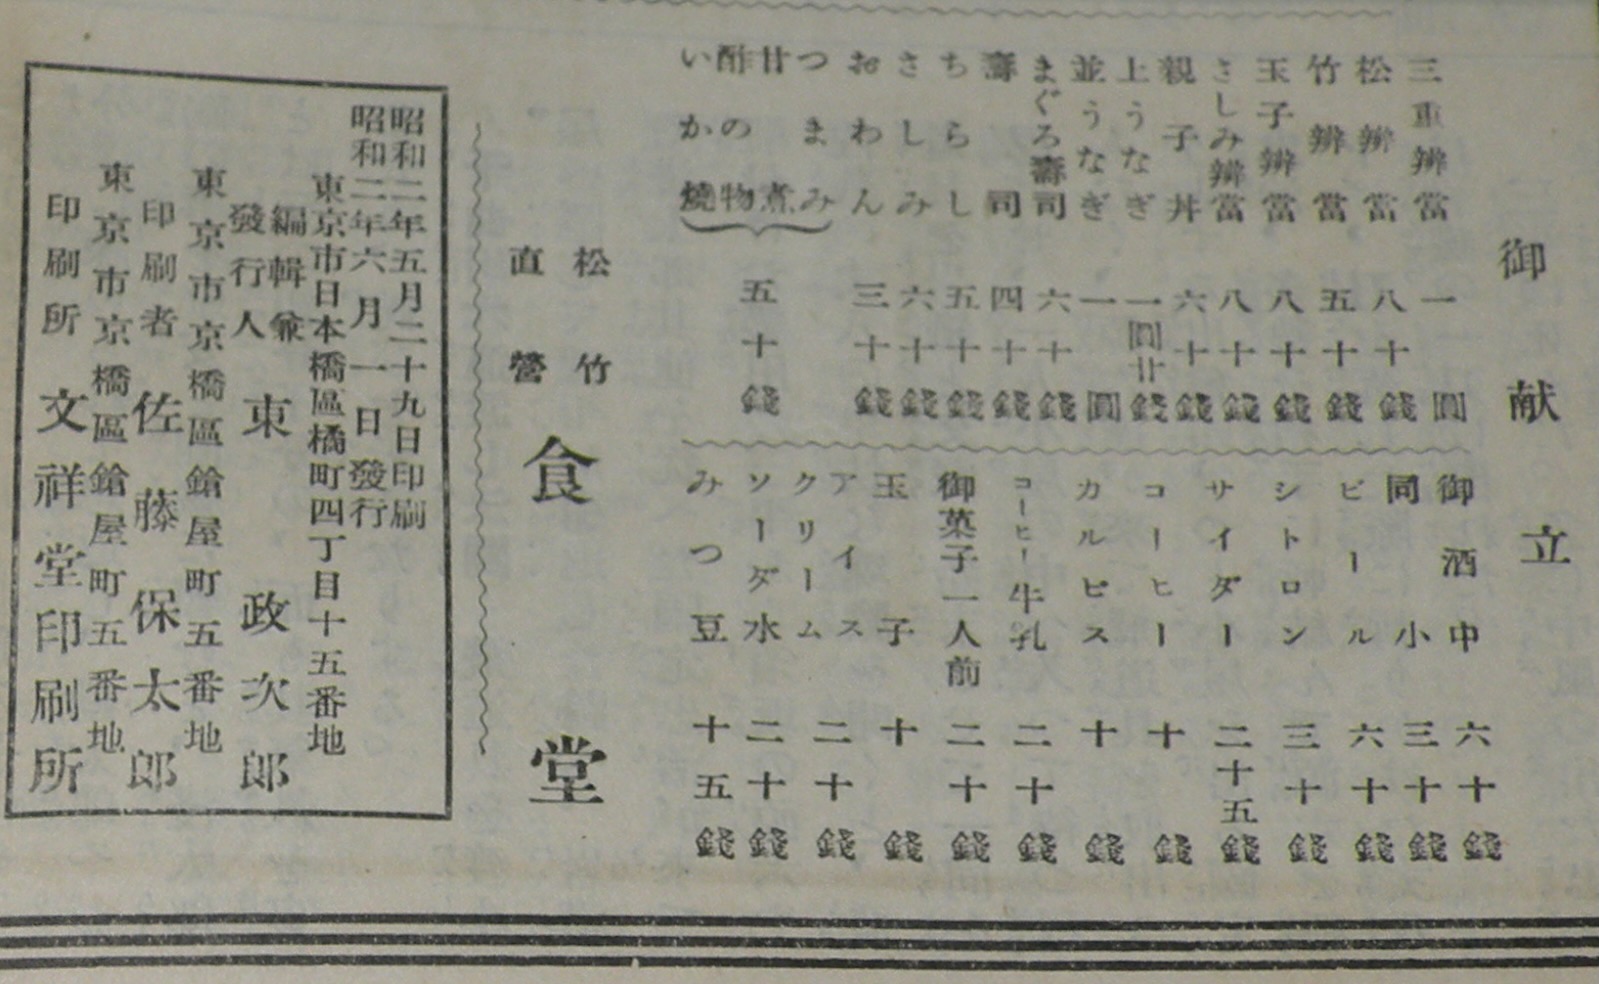 御献立
三重辨當 一圓
松辨當 八十錢
竹辨當 五十錢
玉子辨當 八十錢
さしみ辨當 八十錢
親子丼 六十錢
上うなぎ 一圓廿錢
並うなぎ 一圓
まぐろ壽司 六十錢
壽司 四十錢
ちらし 五十錢
さしみ 六十錢
おわん 三十錢
つまみ
甘煮
酢の物
いか燒
五十錢
御酒中 六十錢
同小 三十錢
ビール 六十錢
シトロン 三十錢
サイダー 二十五錢
コーヒー 十錢
カルピス 十錢
コーヒー牛乳 二十錢
御菓子一人前 二十錢
玉子 十錢
アイス
クリーム
二十錢
ソーダ水 二十錢
みつ豆 十五錢
松竹
直營
食堂
昭和二年五月二十九日印刷
昭和二年六月一日發行
東京市日本橋區橘町四丁目十五番地
編輯兼
發行人
東政次郎
東京市京橋區鎗屋町五番地
印刷者 佐藤保太郎
東京市京橋區鎗屋町五番地
印刷所 文祥堂印刷所